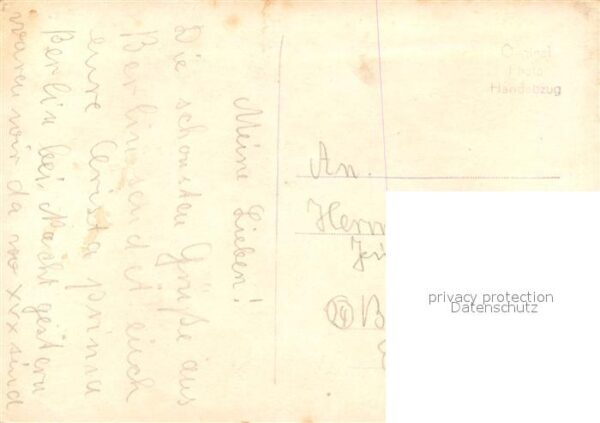 Meine Lieben!
Die schönsten Grüße aus
Berlin sendet euch
eure Christa
Berlin bei Nacht gestern
waren wir da wo xxx sind
Original
Photo
Handabzug
An.
Herrn
(24) B
privacy protection
Datenschutz